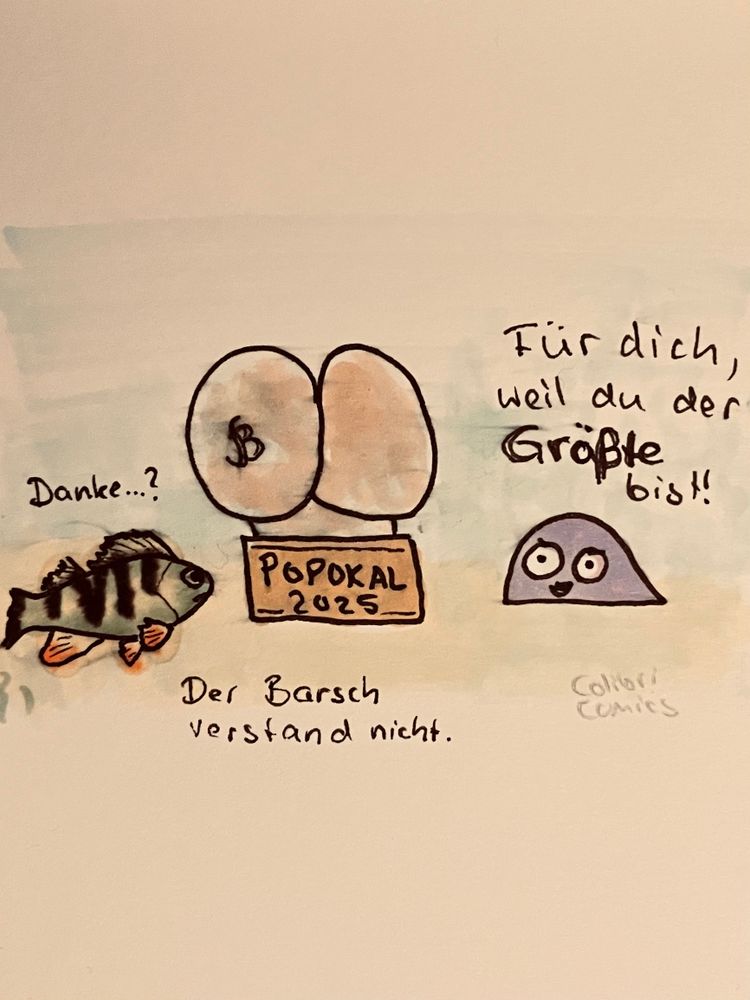 Für dich,
weil du der
Größte
bist!!
Danke...?
B
POPOKAL
2025
Der Barsch
verstand nicht.
Colibri
Comics